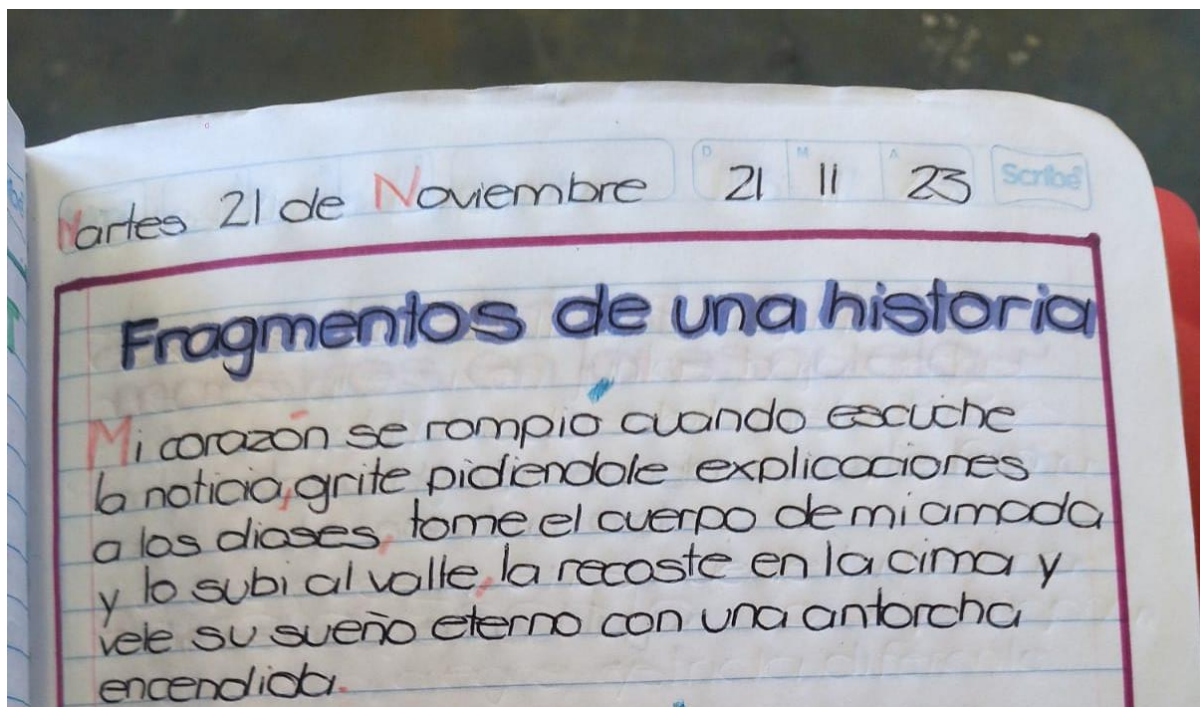 Martes 21 de Noviembre
D 21 M 11 A 23 Scribe
Fragmentos de una historia
Mi corazón se rompió cuando escuche
la noticia, grite pidiendole explicaciones
a los dioses, tome el cuerpo de mi amada
y lo subi al valle, la recoste en la cima y
vele su sueño eterno con una antorcha
encendida.